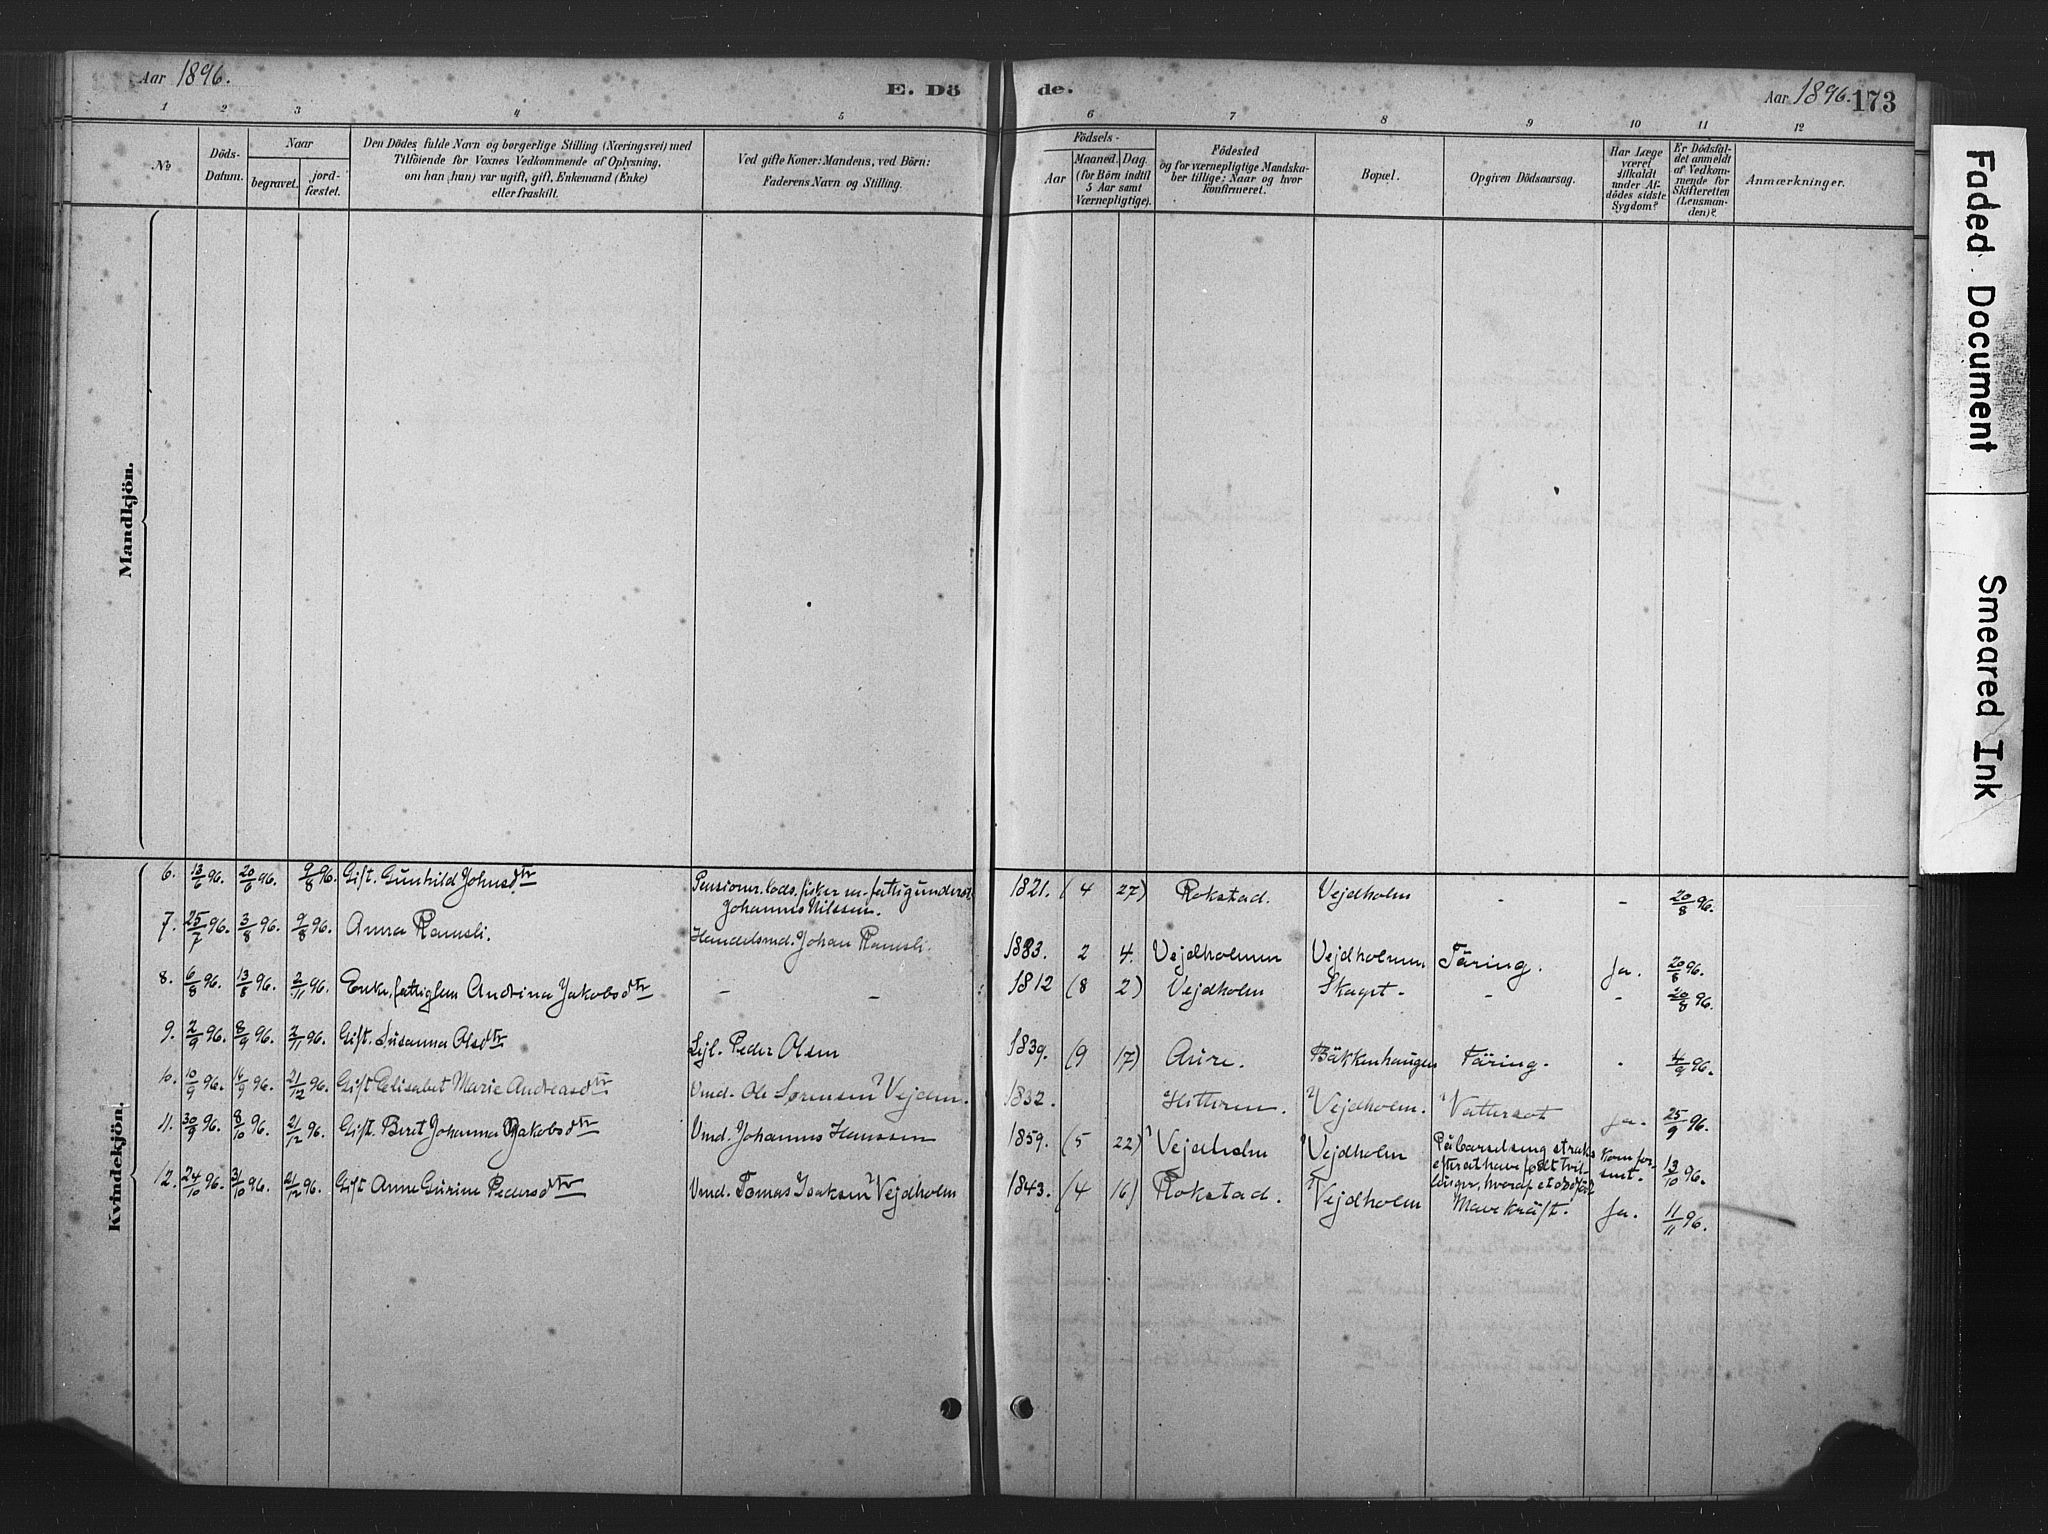 Aar 1896.
E. Dö
de.
Aar 1896. 173
1 2 3 4 5 6 7 8 9 10 11 12
No
Döds-Datum.
Naar
begravet.
jord-fæstet.
Den Dödes fulde Navn og borgerlige Stilling (Næringsvei) med
Tilföiende for Voxnes Vedkommende af Oplysning,
om han (hun) var ugift, gift, Enkemand (Enke)
eller fraskilt.
Ved gifte Koner: Mandens, ved Börn:
Faderens Navn og Stilling.
Födsels-
Aar
Maaned. Dag.
(for Börn indtil
5 Aar samt
Værnepligtige).
Födested
og for værnepligtige Mandska-
ber tillige: Naar og hvor
konfirmeret.
Bopæl.
Opgiven Dödsaarsag.
Har Læge
været
tilkaldt
under Af-
dödes sidste
Sygdom?
Er Dödsfal-
det anmeldt
af Vedkom-
mende for
Skifteretten
(Lensman-
den)?
Anmærkninger.
Mandkjön.
Kvindekjön.
6. 13/6 96. 20/6 96. 9/8 96. Gift. Gunhild Johnsdtr Pensionr. Lods, fisker m. fattigunderst. 1821. (4 27) Rokstad. Vejdholm - - 20/8 96.
Johannes Nilssen.
7. 25/7 96. 3/8 96. 9/8 96. Anna Ramsli. Handelsmd. Johan Ramsli. 1883. 2 4. Vejdholmen Vejdholmen Täring. Ja. 20/8 96.
8. 6/8 96. 13/8 96. 2/11 96. Enke, fattiglem Andrina Jakobsdtr - - 1812 (8 2) Vejdholm Skaget. - - 20/8 96.
9. 2/9 96. 8/9 96. 2/11 96. Gift. Susanna Olsdtr Lejl. Peder Olsen 1839. (9 17) Aure. Bäkkenhaugen Täring. - 4/9 96.
10. 10/9 96. 14/9 96. 21/12 96. Gift Elisabet Marie Andreasdtr Vmd. Ole Sørensen Vejdm. 1832. Hitteren. Vejdholm. Vattersot Ja. 25/9 96.
11. 30/9 96. 8/10 96. 21/12 96. Gift. Beret Johanna Jakobsdtr Vmd. Johannes Hanssen 1859. (5 22) Vejdholm Vejdholm På barselseng straks kom for 13/10 96.
efter at have født tvil- sent.
linger, hvoraf et dødfød
12. 24/10 96. 31/10 96. 21/12 96. Gift Anne Gurine Pedersdtr Vmd. Tomas Isaksen Vejdholm 1843. (4 16) Rokstad. Vejdholm Mavekräft. Ja. 11/11 96.
Faded Document
Smeared Ink